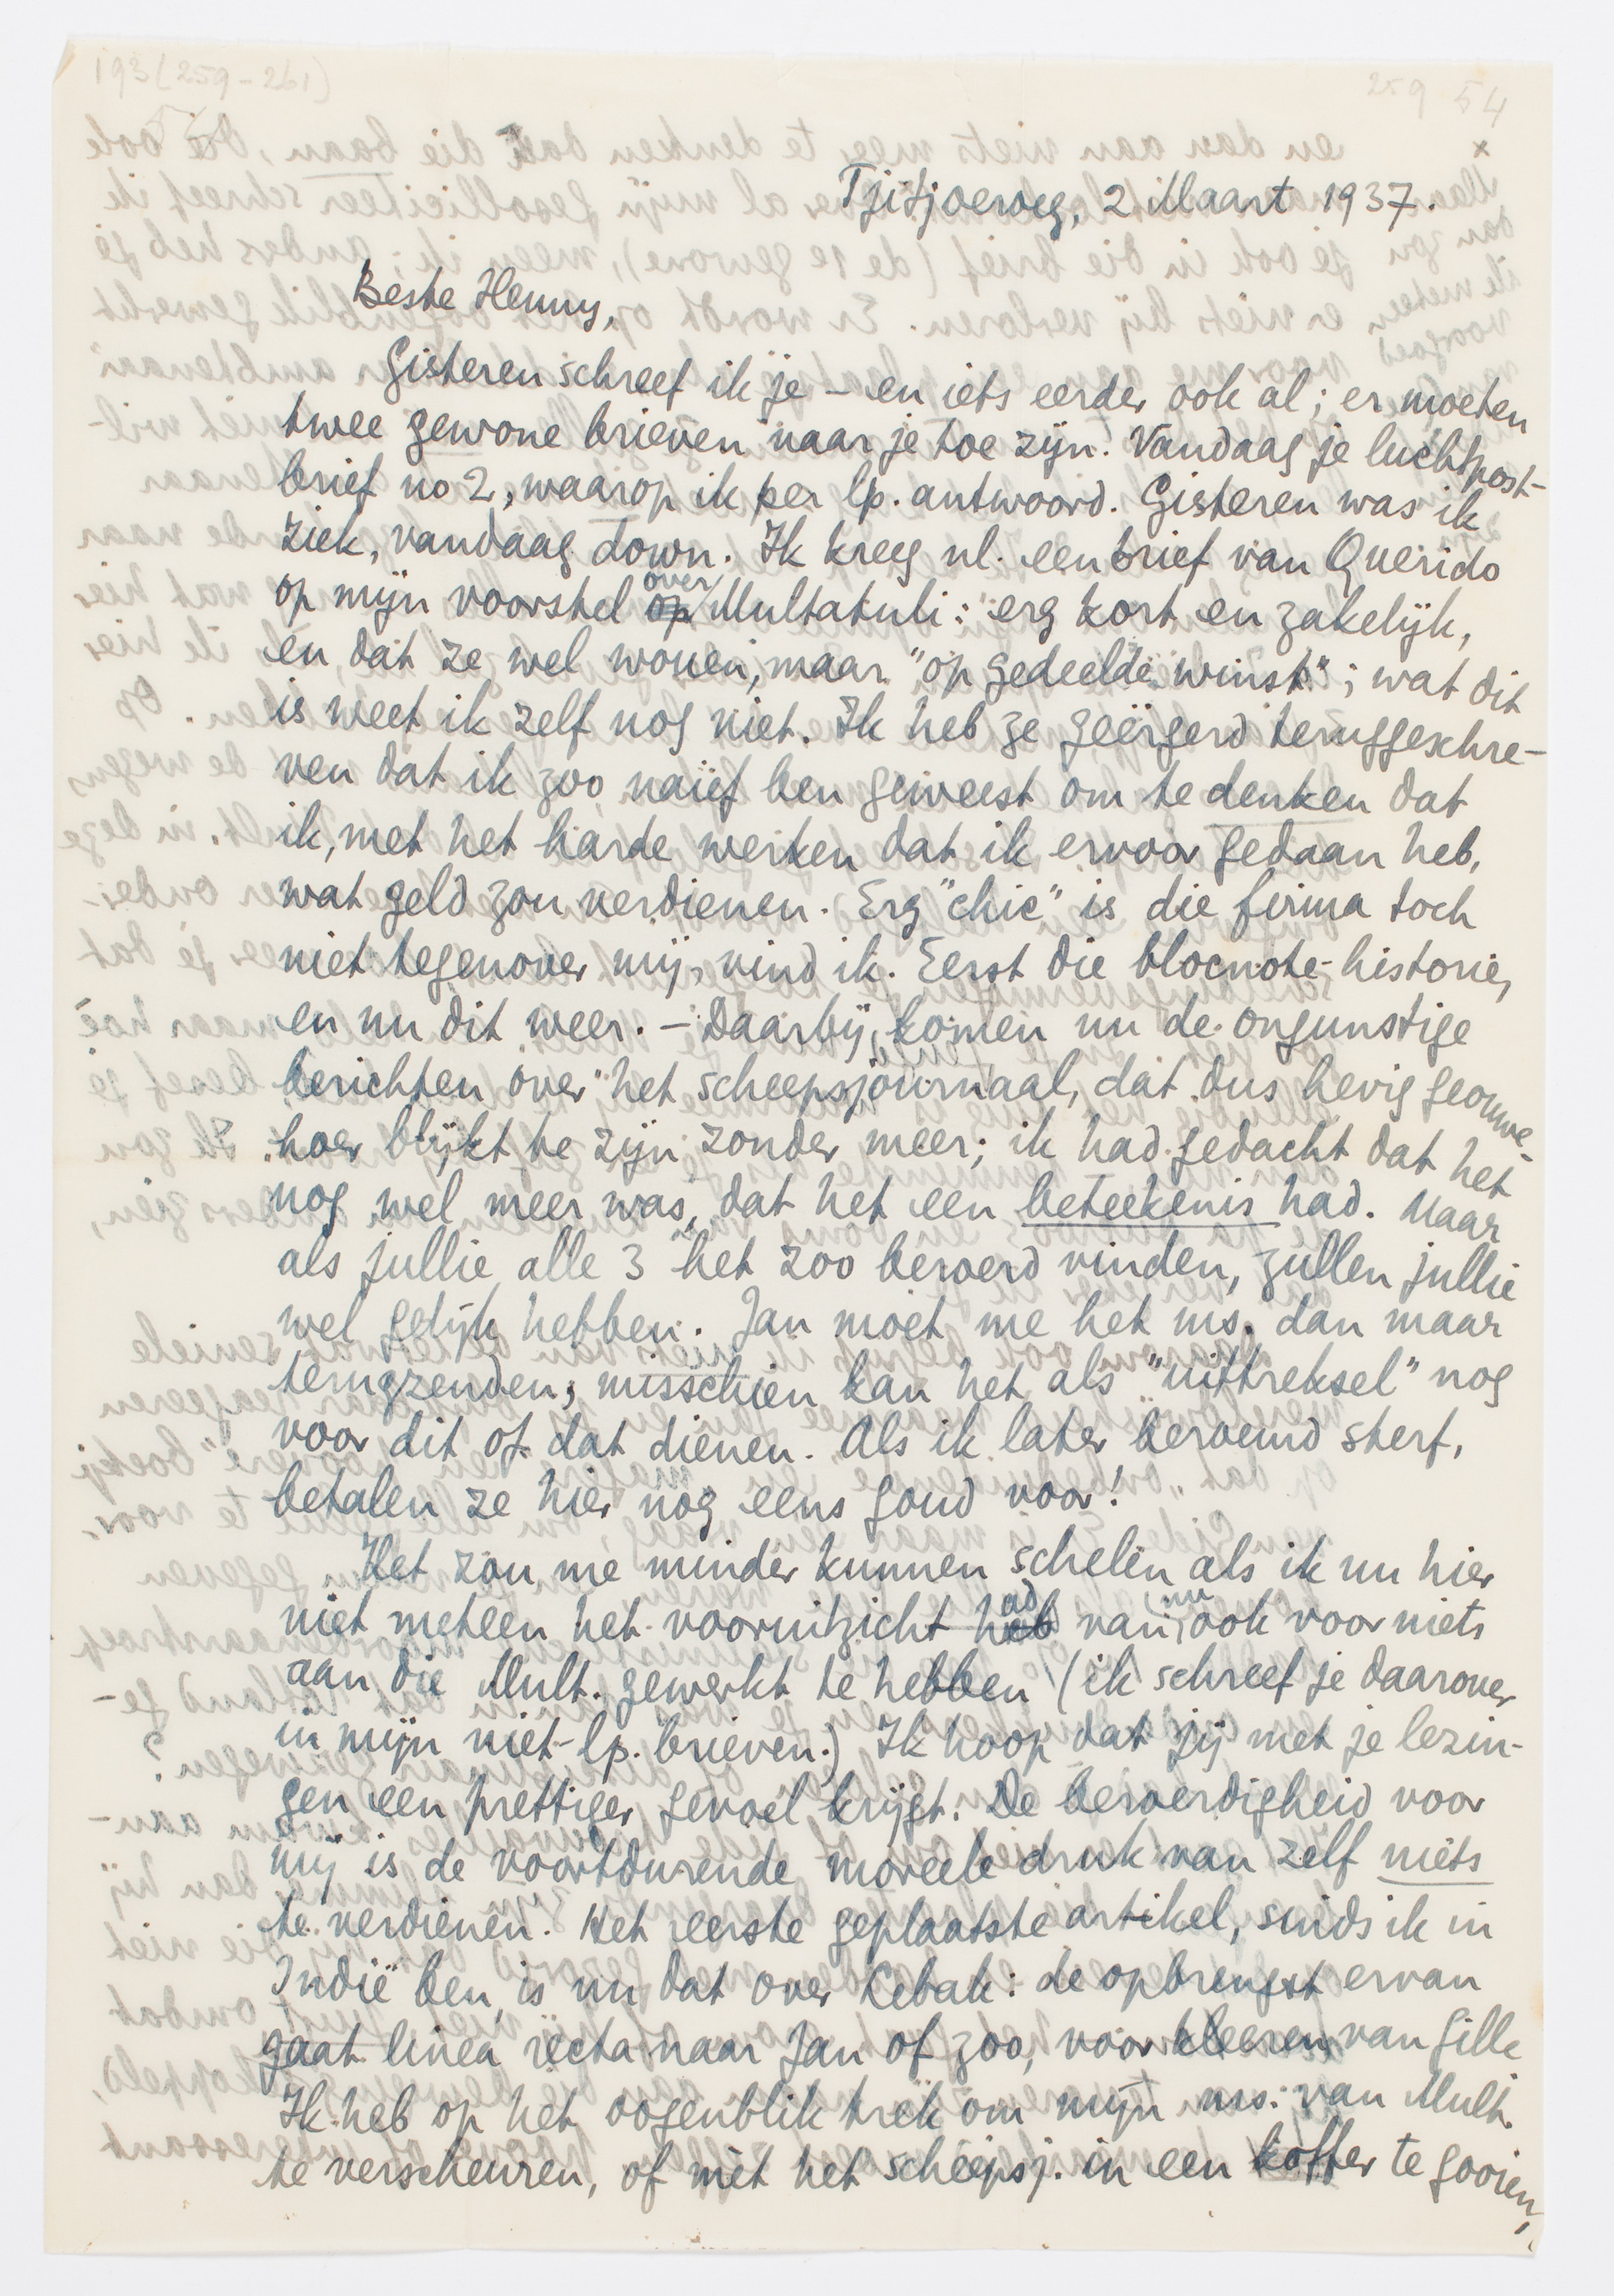 193 (259-261)
259 54
Tjitjoeroeg, 2 Maart 1937.
Beste Henny,
Gisteren schreef ik je – en iets eerder ook al; er moeten
twee gewone brieven naar je toe zijn. Vandaag je luchtpost-
brief no 2, waarop ik per lp. antwoord. Gisteren was ik
ziek, vandaag down. Ik kreeg nl. een brief van Querido
op mijn voorstel op over Multatuli: erg kort en zakelijk,
en dat ze wel wouen, maar "op gedeelde winst"; wat dit
is weet ik zelf nog niet. Ik heb ze geërgerd teruggeschre-
ven dat ik zoo naïef ben geweest om te denken dat
ik, met het harde werken dat ik ervoor gedaan heb,
wat geld zou verdienen. Erg "chic" is die firma toch
niet tegenover mij, vind ik. Eerst die blocnote-historie,
en nu dit weer. – Daarbij komen nu de ongunstige
berichten over het scheepsjournaal, dat dus hevig geouwe-
hoer blijkt te zijn zonder meer; ik had gedacht dat het
nog wel meer was, dat het een beteekenis had. Maar
als jullie alle 3 het zoo beroerd vinden, zullen jullie
wel gelijk hebben. Jan moet me het ms. dan maar
terugzenden; misschien kan het als "uittreksel" nog
voor dit of dat dienen. Als ik later beroemd sterf,
betalen ze hier nog eens goud voor!
Het zou me minder kunnen schelen als ik nu hier
niet meteen het vooruitzicht heb had van nu ook voor niets
aan die Mult. gewerkt te hebben (ik schreef je daarover
in mijn niet-lp. brieven.) Ik hoop dat jij met je lezin-
gen een prettiger gevoel krijgt. De beroerdigheid voor
mij is de voortdurende moreele druk van zelf niets
te verdienen. Het eerste geplaatste artikel, sinds ik in
Indië ben, is nu dat over Lebak: de opbrengst ervan
gaat linea recta naar Jan of zoo, voor kleeren van Gille
Ik heb op het oogenblik trek om mijn ms. van Mult.
te verscheuren, of mèt het scheepsj. in een koffer te gooien,